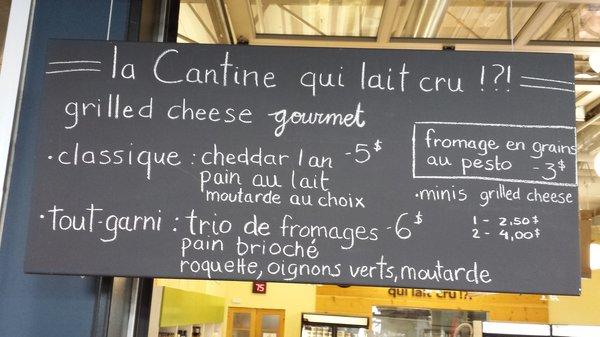 la Cantine qui lait cru !?!
grilled cheese gourmet
• classique : cheddar 1 an - 5$
pain au lait
moutarde au choix
• tout-garni : trio de fromages - 6$
pain brioché
roquette, oignons verts, moutarde
fromage en grains
au pesto - 3$
• minis grilled cheese
1 - 2,50$
2 - 4,00$
75
qui lait cru !?!